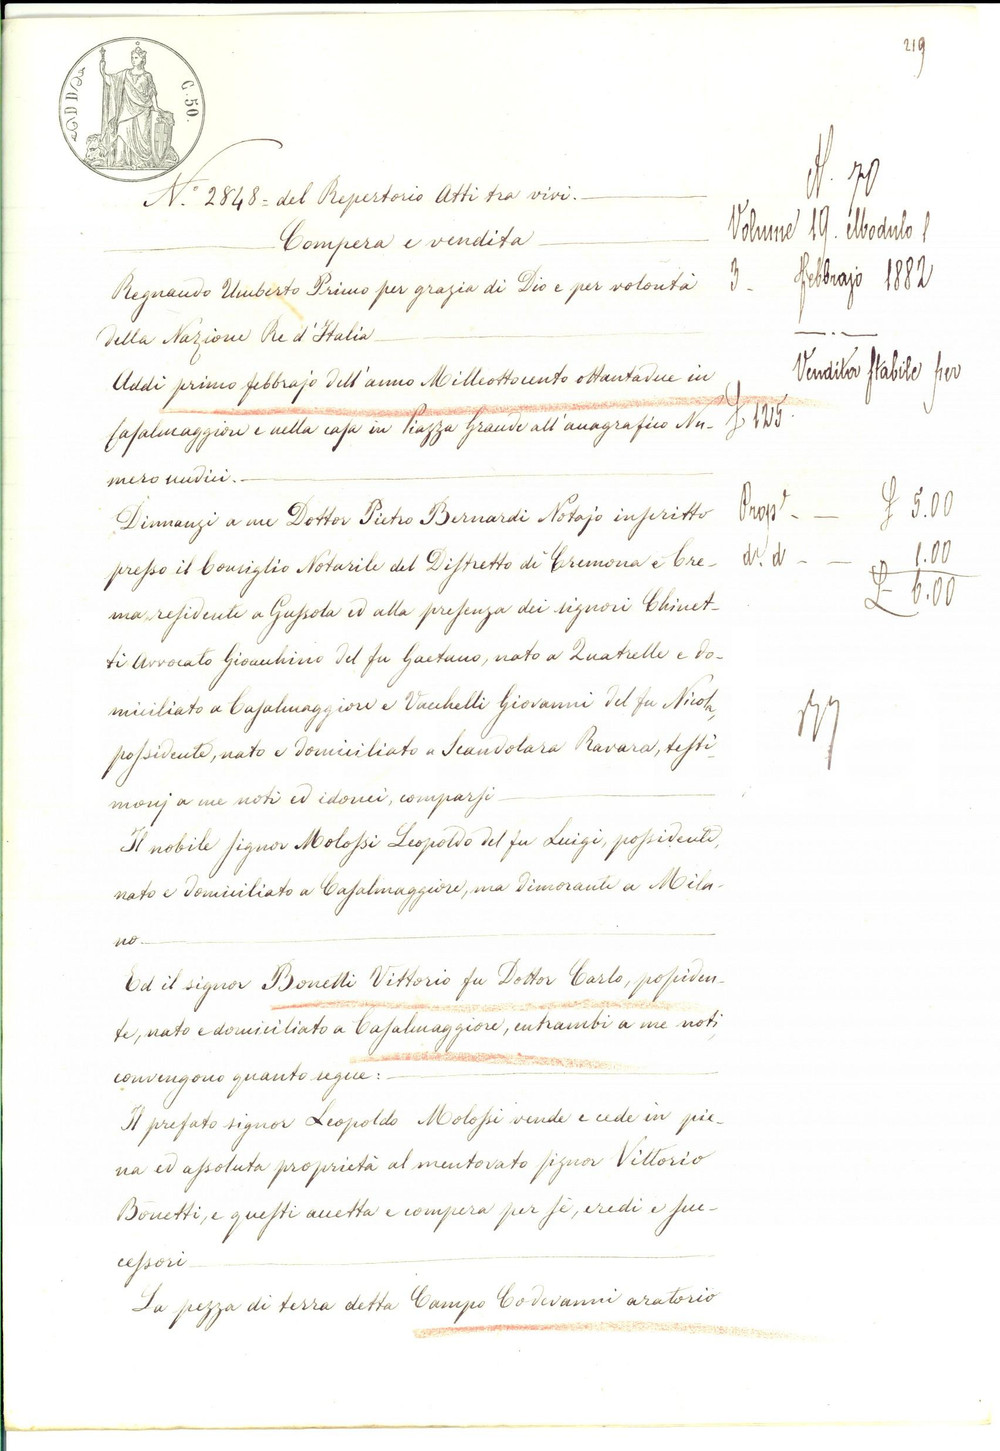 219
C. 50.
N.º 2848 = del Repertorio Atti tra vivi.
Compera e vendita
Regnando Umberto Primo per grazia di Dio e per volontà
della Nazione Re d'Italia
Addì primo febbrajo dell'anno Milleottocento ottantadue in
Casalmaggiore e nella casa in Piazza Grande all'anagrafico Nu-
mero undici.
Dinnanzi a me Dottor Pietro Bernardi Notajo inscritto
presso il Consiglio Notarile del Distretto di Cremona e Cre-
ma residente a Gussola ed alla presenza dei signori Chinet-
ti Avvocato Gioachino del fu Gaetano, nato a Quatrelle e do-
miciliato a Casalmaggiore e Vacchelli Giovanni del fu Nicola,
possidente, nato e domiciliato a Scandolara Ravara, testi-
monj a me noti ed idonei, comparsi
Il nobile signor Molossi Leopoldo del fu Luigi, possidente,
nato e domiciliato a Casalmaggiore, ma dimorante a Mila-
no
Ed il signor Bonetti Vittorio fu Dottor Carlo, possiden-
te, nato e domiciliato a Casalmaggiore, entrambi a me noti,
convengono quanto segue:
Il prefato signor Leopoldo Molossi vende e cede in pie-
na ed assoluta proprietà al mentovato signor Vittorio
Bonetti, e questi accetta e compera per sè, eredi e suc-
cessori
La pezza di terra detta Campo Codevanni aratorio
N. 70
Volume 19. Modulo 1
3. Febbrajo 1882
Vendita stabile per
£ 125.
Prop.e £ 5.00
d. d 1.00
£ 6.00